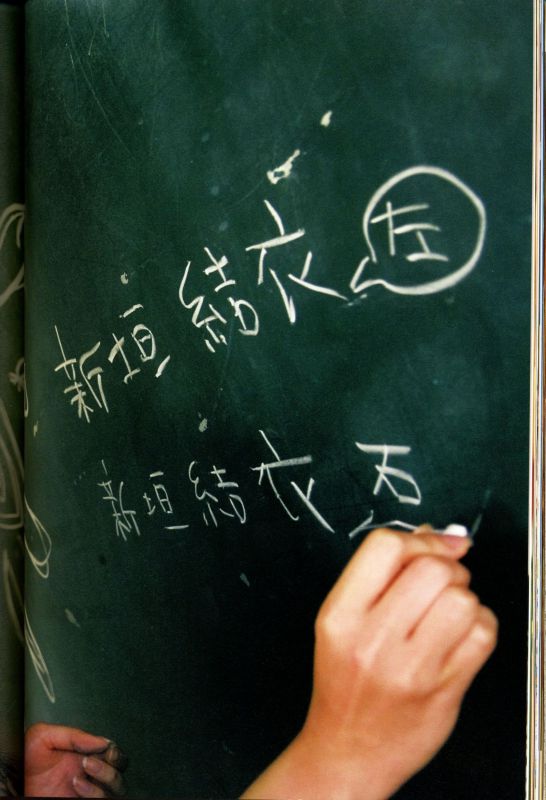 新垣結衣 左
新垣結衣 右